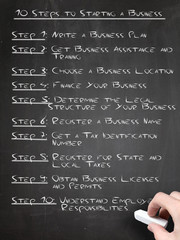 10 Steps to Starting a Business
Step 1: Write a Business Plan
Step 2: Get Business Assistance and
Training
Step 3: Choose a Business Location
Step 4: Finance Your Business
Step 5: Determine the Legal
Structure of Your Business
Step 6: Register a Business Name
Step 7: Get a Tax Identification
Number
Step 8: Register for State and
Local Taxes
Step 9: Obtain Business Licenses
and Permits
Step 10: Understand Employer
Responsibilities